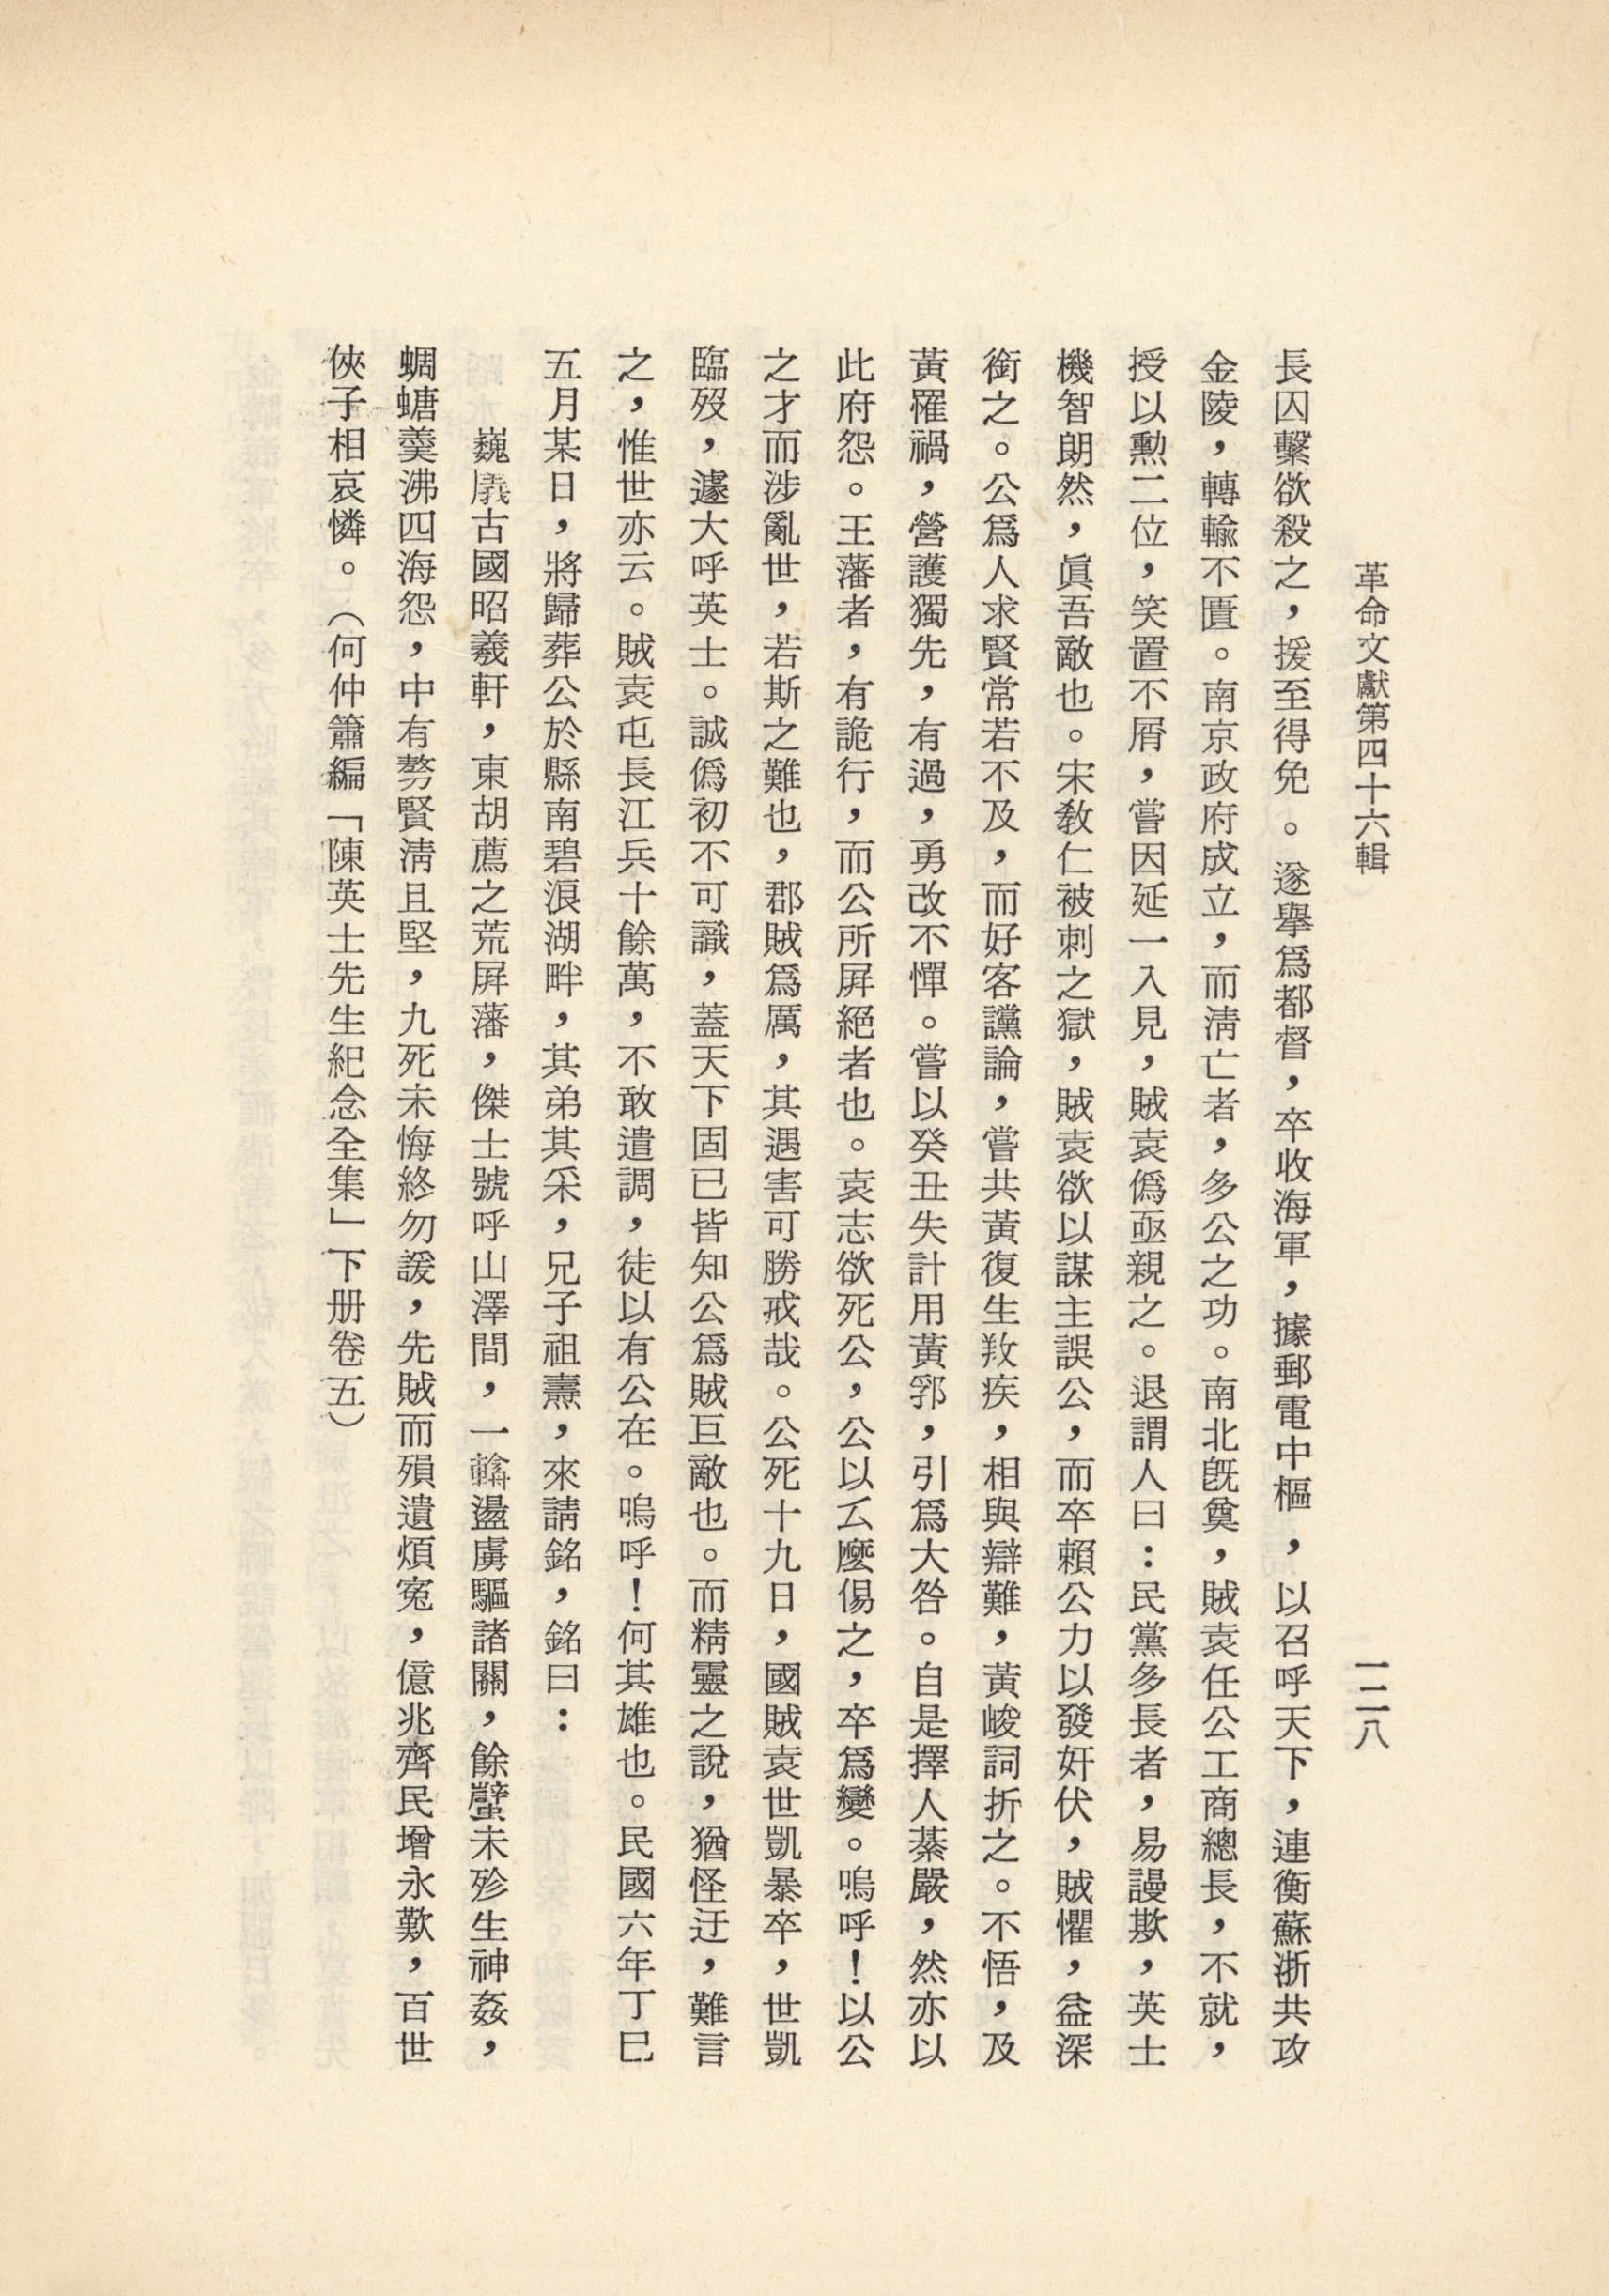 革命文獻第四十六輯
一二八
長囚繫欲殺之，援至得免。遂舉爲都督，卒收海軍，據郵電中樞，以召呼天下，連衡蘇浙共攻
金陵，轉輸不匱。南京政府成立，而淸亡者，多公之功。南北旣奠，賊袁任公工商總長，不就，
授以勳二位，笑置不屑，嘗因延一入見，賊袁僞亟親之。退謂人曰：民黨多長者，易謾欺，英士
機智朗然，眞吾敵也。宋敎仁被刺之獄，賊袁欲以謀主誤公，而卒賴公力以發奸伏，賊懼，益深
銜之。公爲人求賢常若不及，而好客讜論，嘗共黃復生敎疾，相與辯難，黃峻詞折之。不悟，及
黃罹禍，營護獨先，有過，勇改不憚。嘗以癸丑失計用黃郛，引爲大咎。自是擇人綦嚴，然亦以
此府怨。王藩者，有詭行，而公所屛絕者也。袁志欲死公，公以厶麼傷之，卒爲變。嗚呼！以公
之才而涉亂世，若斯之難也，郡賊爲厲，其遇害可勝戒哉。公死十九日，國賊袁世凱暴卒，世凱
臨歿，遽大呼英士。誠僞初不可識，蓋天下固已皆知公爲賊巨敵也。而精靈之說，猶怪迂，難言
之，惟世亦云。賊袁屯長江兵十餘萬，不敢遣調，徒以有公在。嗚呼！何其雄也。民國六年丁巳
五月某日，將歸葬公於縣南碧浪湖畔，其弟其采，兄子祖燾，來請銘，銘曰：
巍古國昭羲軒，東胡薦之荒屛藩，傑士號呼山澤間，一盪虜驅諸關，餘未殄生神姦，
蜩螗羹沸四海怨，中有勞賢淸且堅，九死未悔終勿諼，先賊而殞遺煩冤，億兆齊民增永歎，百世
俠子相哀憐。（何仲簫編「陳英士先生紀念全集」下册卷五）